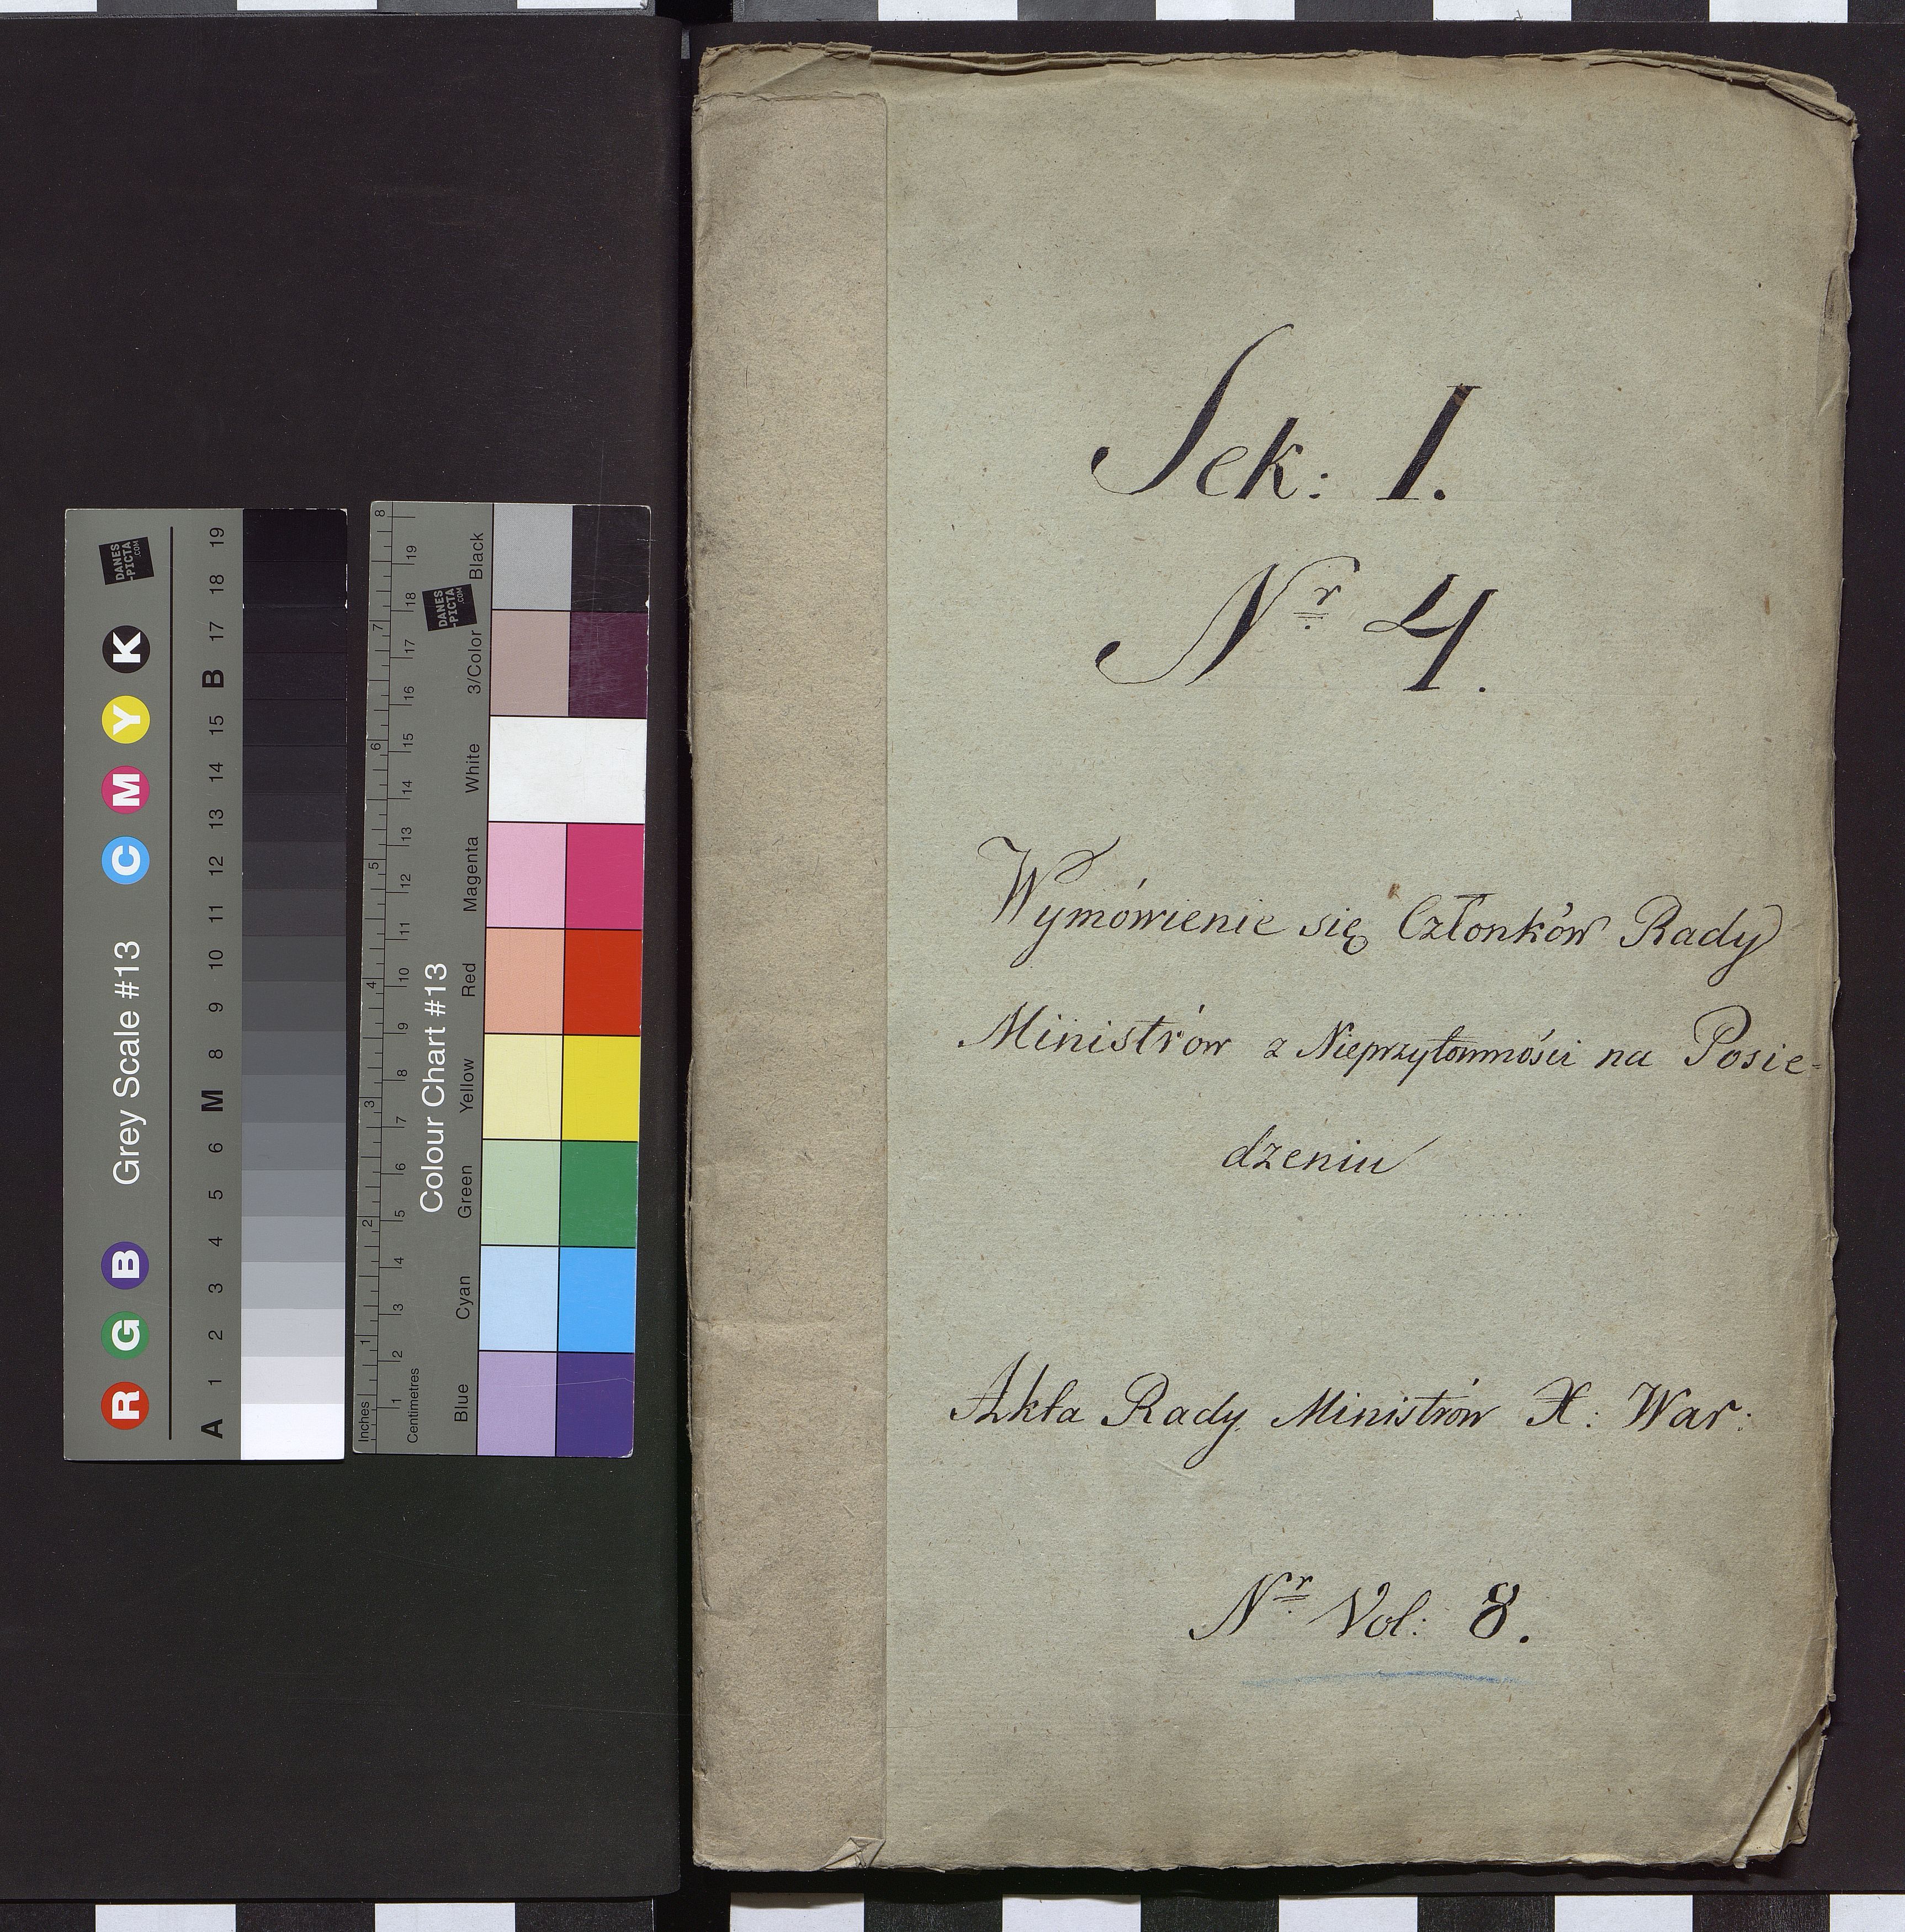 Sek: I.
Nr 4.
Wymówienie się Członków Rady
Ministrów z Nieprzytomności na Posie-
dzeniu
Akta Rady Ministrów X: War:
Nr Vol: 8.
Grey Scale #13
R G B C M Y K
A 1 2 3 4 5 6 M 8 9 10 11 12 13 14 15 B 17 18 19
DANES
-PICTA
.COM
Colour Chart #13
Blue Cyan Green Yellow Red Magenta White 3/Color Black
Inches 1 2 3 4 5 6 7 8
Centimetres 1 2 3 4 5 6 7 8 9 10 11 12 13 14 15 16 17 18 19
DANES
-PICTA
.COM